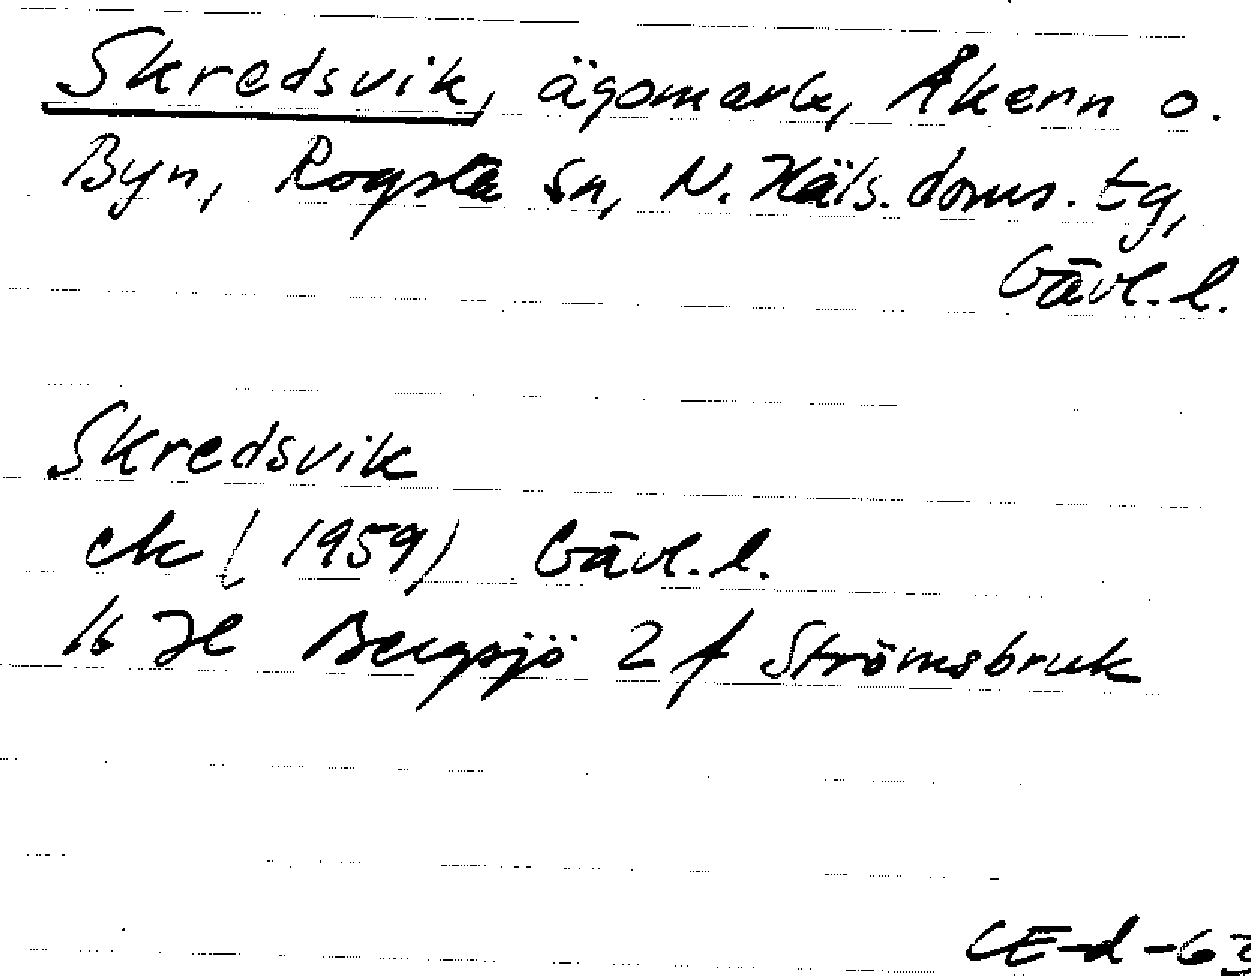 Skredsvik, ägomark, Åkern o.
Byn, Rogsta sn, N. Häls. doms. tg,
Gävl. l.
Skredsvik
ek (1959) Gävl. l.
16 H Bergsjö 2 f Strömsbruk
CE-d-63